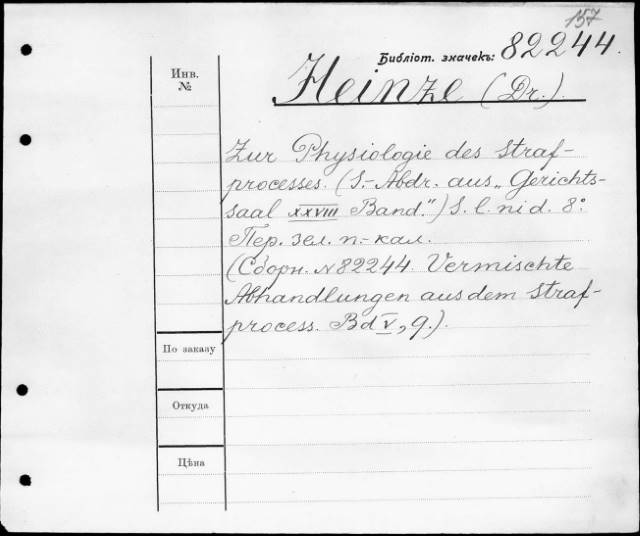 157
Библіот. значекъ: 82244.
Инв. №
Heinze (Dr.)
Zur Physiologie des Straf-
processes. (S.-Abdr. aus „Gerichts-
saal XXVIII Band.") S. l. ni d. 8°.
Пер. зел. п.-кал.
(Сборн. № 82244. Vermischte
Abhandlungen aus dem Straf-
process. Bd V, 9.).
По заказу
Откуда
Цѣна